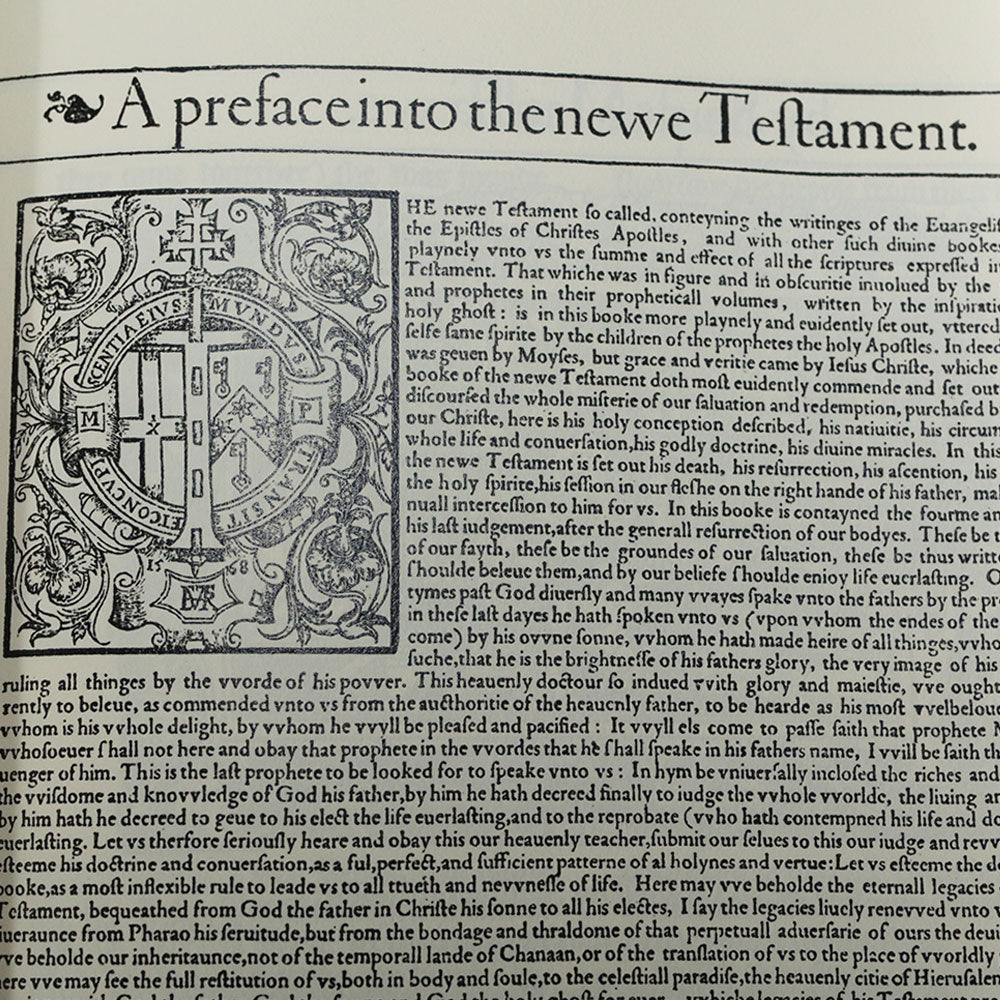 A preface into the newe Teſtament.
MVNDVS TRANSIT
ET CONCVPISCENTIA EIVS
M
P
15 68
HE newe Teſtament ſo called, conteyning the writinges of the
the Epiſtles of Chriſtes Apoſtles, and with other ſuch diuine
playnely vnto vs the ſumme and effect of all the ſcriptures expreſſed
Teſtament. That whiche was in figure and in obſcuritie inuolued by the
and prophetes in their propheticall volumes, written by the
holy ghoſt: is in this booke more playnely and euidently ſet out, vttered
ſelfe ſame ſpirite by the children of the prophetes the holy Apoſtles. In
was geuen by Moyſes, but grace and veritie came by Ieſus Chriſte, whiche
booke of the newe Teſtament doth moſt euidently commende and ſet out
diſcourſed the whole miſterie of our ſaluation and redemption, purchaſed
our Chriſte, here is his holy conception deſcribed, his natiuitie, his
whole life and conuerſation,his godly doctrine, his diuine miracles. In this
the newe Teſtament is ſet out his death, his reſurrection, his aſcention, his
the holy ſpirite,his ſeſſion in our fleſhe on the right hande of his father,
nuall interceſſion to him for vs. In this booke is contayned the fourme
his laſt iudgement,after the generall reſurrection of our bodyes. Theſe be
of our fayth, theſe be the groundes of our ſaluation, theſe be thus
ſhoulde beleue them,and by our beliefe ſhoulde enioy life euerlaſting.
tymes paſt God diuerſly and many vvayes ſpake vnto the fathers by the
in theſe laſt dayes he hath ſpoken vnto vs (vpon vvhom the endes of the
come) by his ovvne ſonne, vvhom he hath made heire of all thinges,
ſuche,that he is the brightneſſe of his fathers glory, the very image of his
ruling all thinges by the vvorde of his povver. This heauenly doctour ſo indued vvith glory and maieſtie, vve ought
rently to beleue, as commended vnto vs from the aucthoritie of the heauenly father, to be hearde as his moſt
vvhom is his vvhole delight, by vvhom he vvyll be pleaſed and pacified : It vvyll els come to paſſe ſaith that prophete
vvhoſoeuer ſhall not here and obay that prophete in the vvordes that he ſhall ſpeake in his fathers name, I vvill be ſaith
uenger of him. This is the laſt prophete to be looked for to ſpeake vnto vs : In hym be vniuerſally incloſed the riches and
the vviſdome and knovvledge of God his father,by him he hath decreed finally to iudge the vvhole vvorlde, the liuing
by him hath he decreed to geue to his elect the life euerlaſting,and to the reprobate (vvho hath contempned his life and
euerlaſting. Let vs therfore ſeriouſly heare and obay this our heauenly teacher,ſubmit our ſelues to this our iudge and
eſteeme his doctrine and conuerſation,as a ful,perfect,and ſufficient patterne of al holynes and vertue:Let vs eſteeme the
booke,as a moſt inflexible rule to leade vs to all trueth and nevvneſſe of life. Here may vve beholde the eternall legacies
Teſtament, bequeathed from God the father in Chriſte his ſonne to all his electes, I ſay the legacies liuely renevved vnto
iueraunce from Pharao his ſeruitude,but from the bondage and thraldome of that perpetuall aduerſarie of ours the
vve beholde our inheritaunce,not of the temporall lande of Chanaan,or of the tranſlation of vs to the place of vvorldly
here vve may ſee the full reſtitution of vs,both in body and ſoule,to the celeſtiall paradiſe,the heauenly citie of